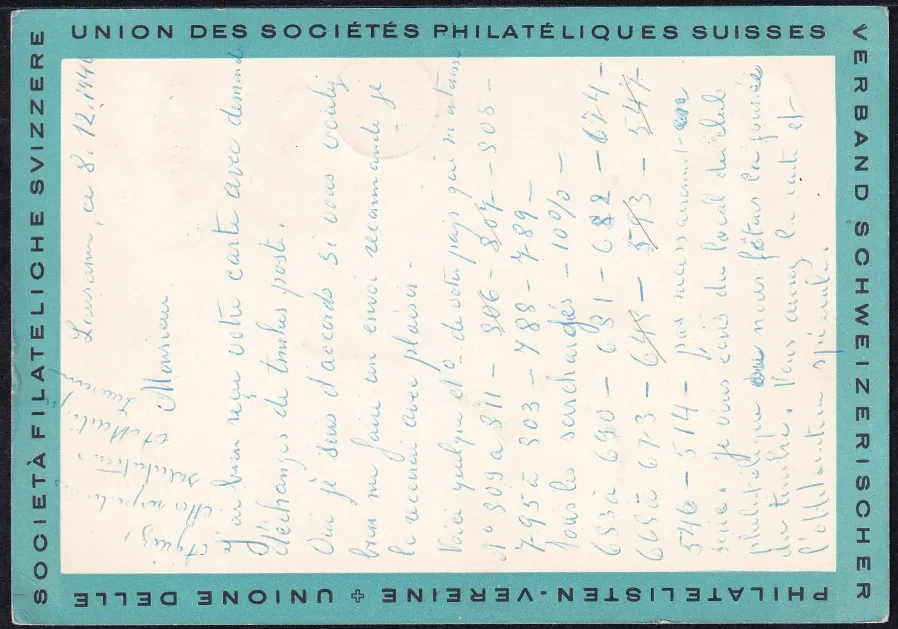 UNION DES SOCIÉTÉS PHILATÉLIQUES SUISSES
VERBAND SCHWEIZERISCHER
PHILATELISTEN-VEREINE + UNIONE DELLE
SOCIETÀ FILATELICHE SVIZZERE
Lausanne, ce 8.12.1946
Monsieur
J'ai bien reçu votre carte avec demande
d'échanges de timbres poste.
Oui je suis d'accords si vous voulez
bien me faire un envoi recommandé je
le recevrai avec plaisir.
Voici quelques nos de votre pays qui m'
No 309 à 311 - 306 - 307 - 308 -
795 à 303 - 788 - 789 -
Tous les surchargés - 10% -
633 à 690 - 631 - 682 - 674 -
665 à 673 - 645 - 593 - 547 -
546 - 514 - pas nécessairement
série. Je vous écris du local du club
philatélique nous fêtons la journée
du timbre. Vous aurez la carte et
l'oblitération spéciale.
Agréez,
salutations